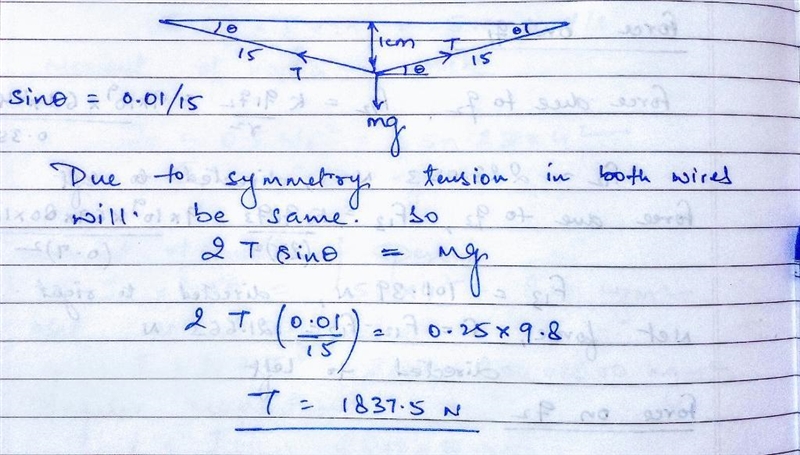 θ 1cm θ
15 T T 15
θ
sinθ = 0.01/15
mg
Due to symmetry tension in both wires
will be same. So
2 T sinθ = mg
2 T (0.01/15) = 0.25 × 9.8
T = 1837.5 N